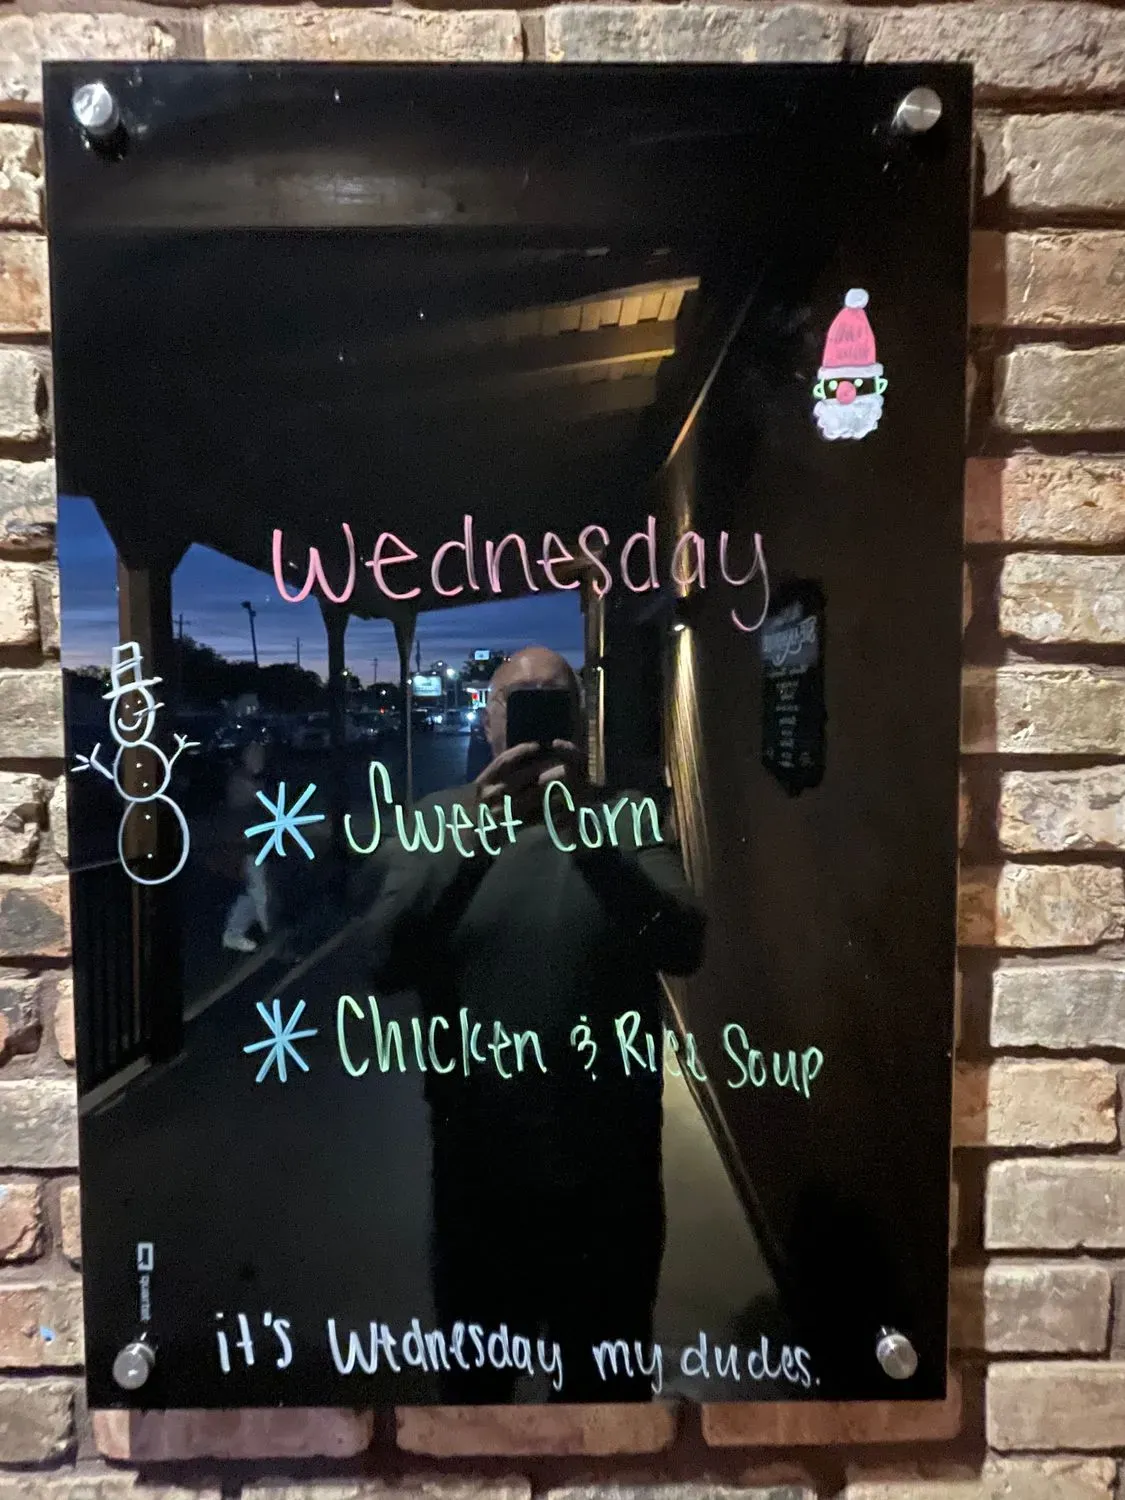 Wednesday
* Sweet Corn
* Chicken & Rice Soup
quartet
it's Wednesday my dudes.